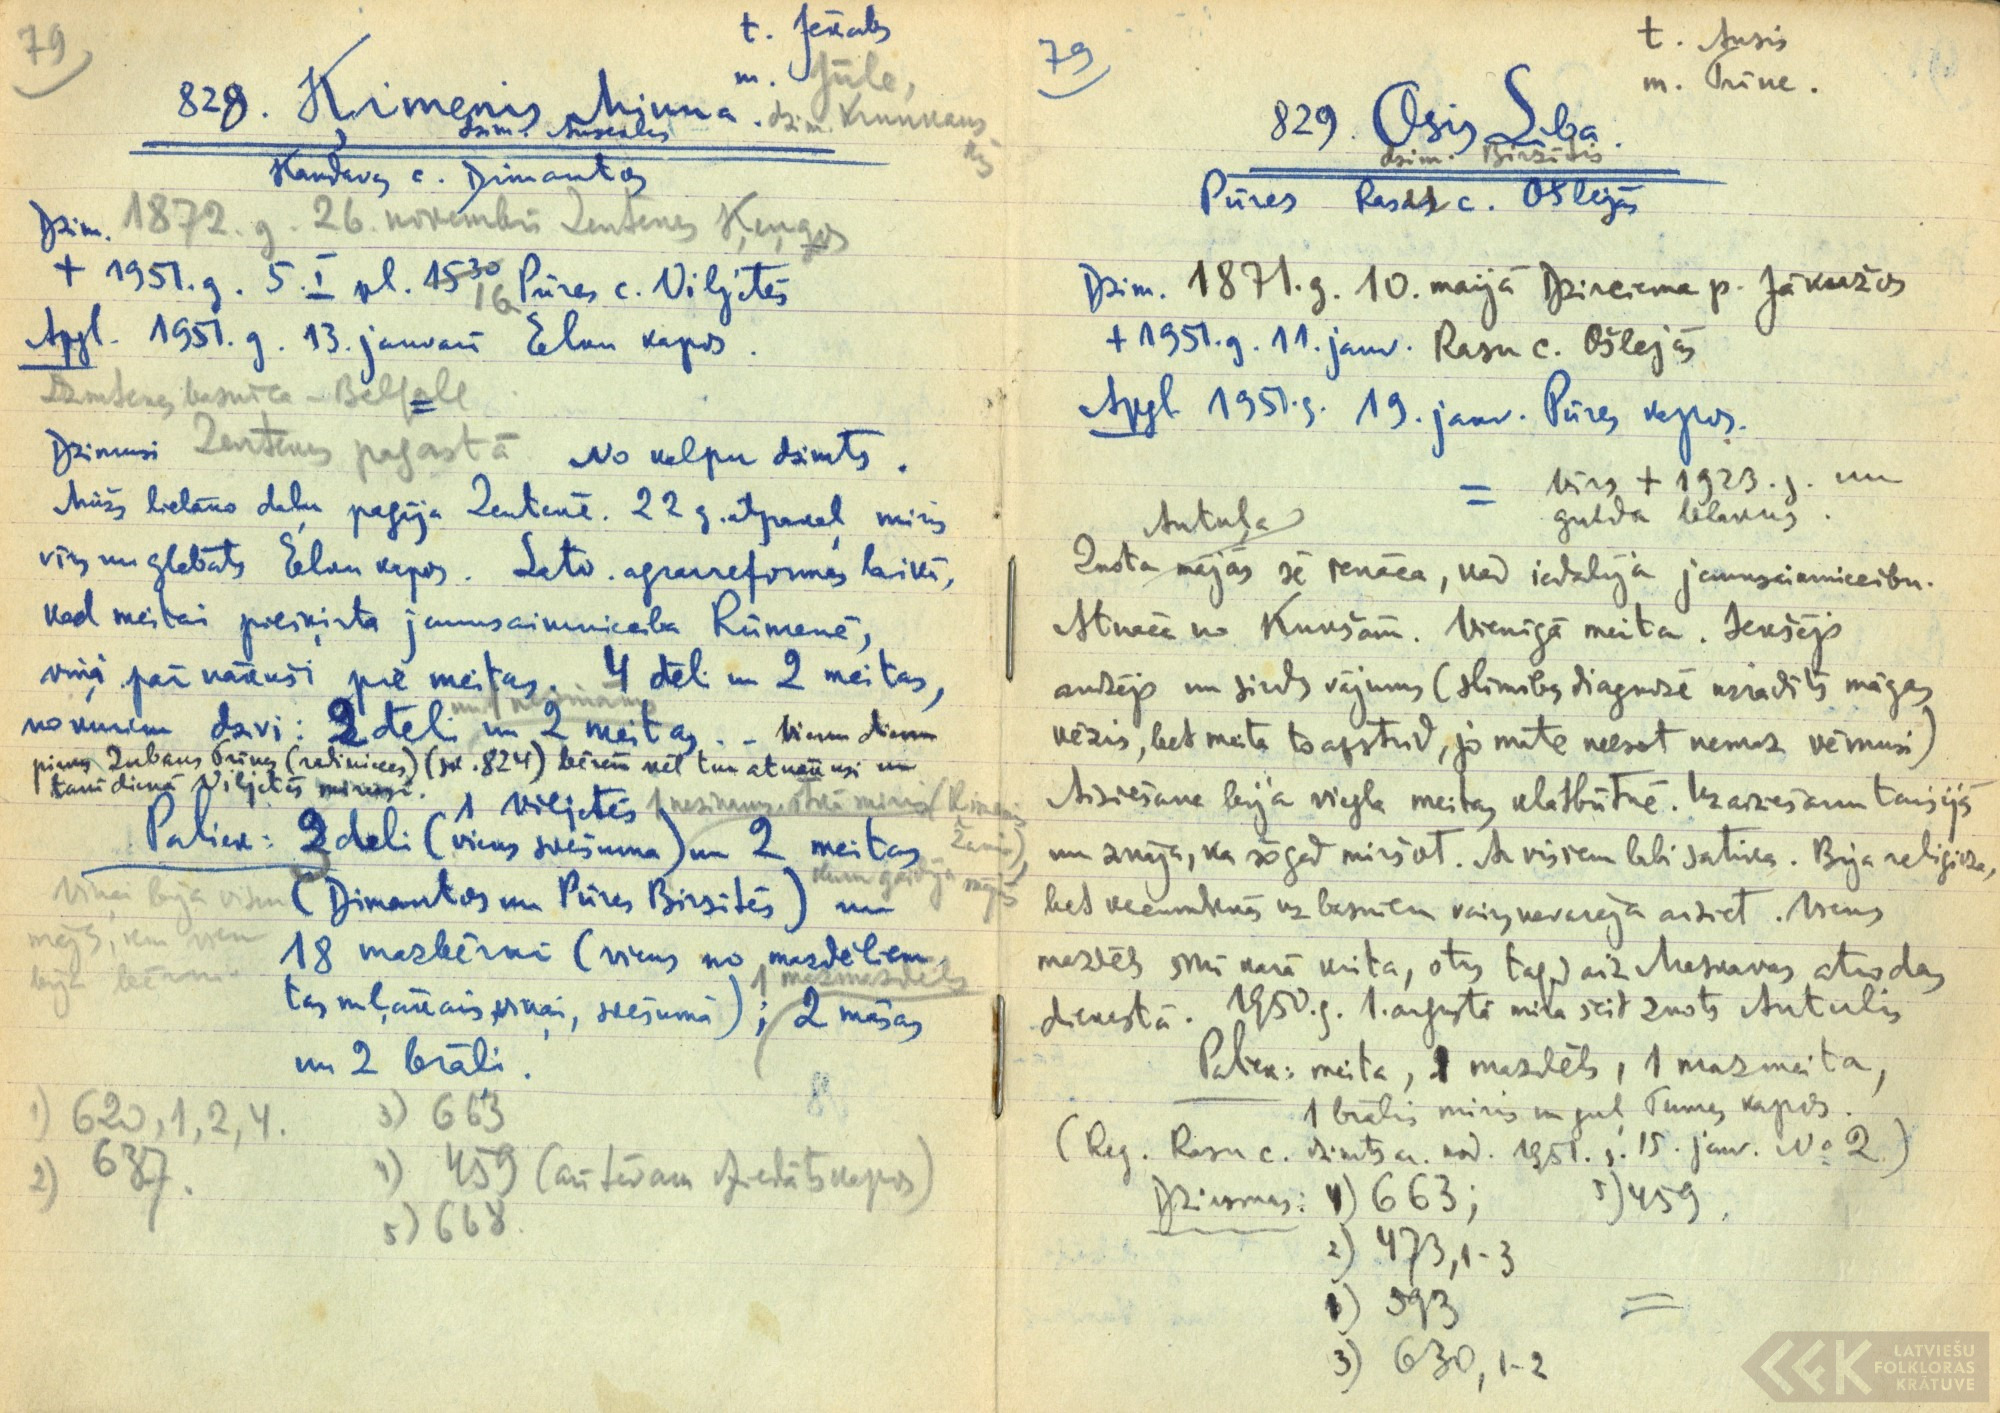 79
t. Jēkabs
m. Jūle,
dzim. Krunkans
828. Ķimenis Minna.
dzim. Anseklis
Kandavas c. Dimantos
Dzim. 1872. g. 26. novembrī Zentenes Ķeņģos
+ 1951. g. 5. I pl. 15 30 Pūres c. Viljētēs
16
Apgl. 1951. g. 13. janvarī Elku kapos.
Dzimtenes basnīca - Belfale
=
Dzimusi Zentenes pagastā No kalpu dzimts.
Mūžs lielāko daļu pagāja Zentenē. 22 g. atpakaļ miris
vīrs un glabāts Elku kapos. Latv. agrarreformas laikā,
kad meitai piešķirta jaunsaimnieciba Rūmenē,
viņi pārnākuši pie meitas. 4 dēli un 2 meitas,
no kuriem dzīvi: 2 dēli un 2 meitas. - Vienu dienu
pirms Zubans Trīnes (radinieces) (sk. 824) bērēm vēl tur atnākusi un
tanī dienā Viljētēs mirusi.
1 Viljetēs
Paliek: 2 dēli (viens svešuma) un 2 meitas
(Dimantos un Pūres Birzītēs) un
Viņai bija visur
mājās, kur vien
bija bērni.
18 mazbērni (viens no mazdēliem
1 mazmazdēls
tas mīļākais viņai, svešumā); 2 māsas
un 2 brāļi.
1) 620, 1, 2, 4.
2) 637.
3) 663
4) 459 (arī tēvam dziedāts kapos)
5) 668.
79
t. Ansis
m. Trīne.
829. Osis Lība.
dzim. Birzītis
Pūres Rasas c. Ošlejās
Dzim. 1871. g. 10. maijā Dzirciema p. Jākaužos
+ 1951. g. 11. janv. Rasu c. Ošlejās
Apgl. 1951. g. 19. janv. Pūres kapos.
= Vīrs + 1923. g. un
gulda blakus.
Antuļa
Znota mājās šē ienāca, kad iedalīja jaunsaimniecibu.
Atnāca no Kukšām. Vienīgā meita. Iekšējs
audzējs un sirds vājums (slimības diagnozē uzrādīts māgas
vēzis, bet meita to apstrīd, jo māte neesot nemaz vēmusi)
Aiziešana bija viegla meitas klātbūtnē. Uz aiziešanu taisījās
un zināja, ka šogad miršot. Ar visiem labi satika. Bija religioza,
bet vecumdienās uz basnicu vairs nevarēja aiziet. Viens
mazdēls šinī karā krita, otrs tagad aiz Maskavas atrodas
dienestā. 1950. g. 1. augustā mira šeit znots Antulis
Paliek: meita, 1 mazdēls, 1 mazmeita,
1 brālis miris un guļ Tumes kapos.
(Reg. Rasu c. dzimts. a. nod. 1951. g. 15. janv. No 2.)
Dziesmas: 1) 663; 5) 459.
2) 473, 1-3
593
3) 630, 1-2
=
LATVIEŠU
FOLKLORAS
KRĀTUVE